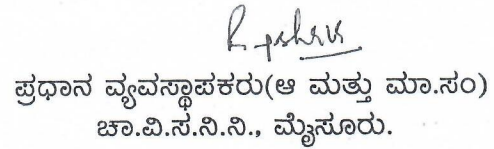 ಪ್ರಧಾನ ವ್ಯವಸ್ಥಾಪಕರು(ಆ ಮತ್ತು ಮಾ.ಸಂ)
ಚಾ.ವಿ.ಸ.ನಿ.ನಿ., ಮೈಸೂರು.